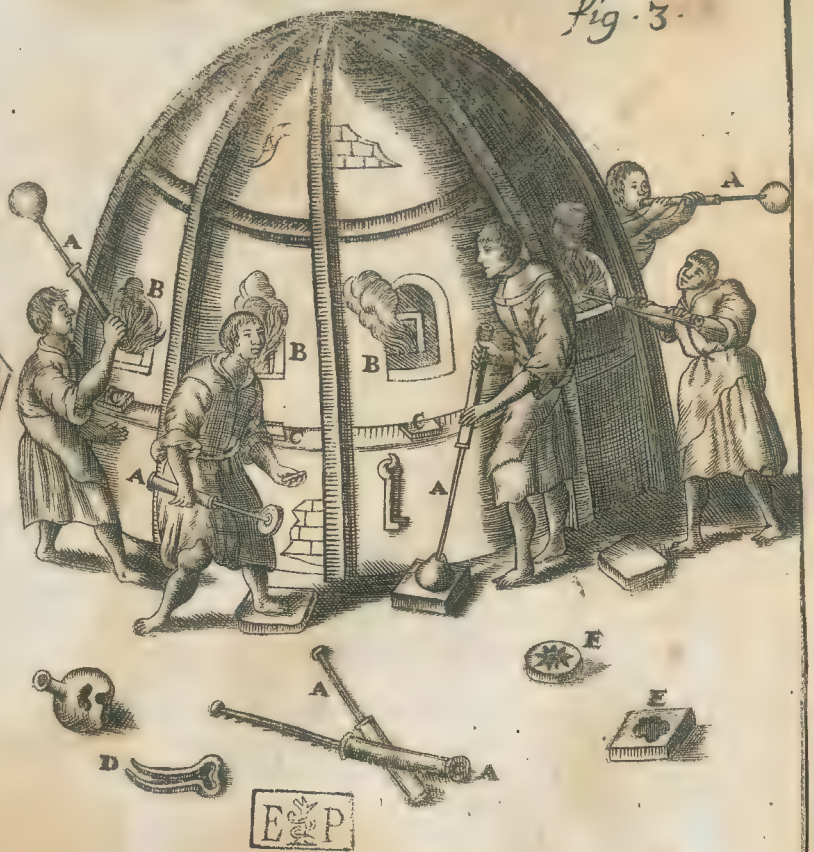 fig. 3.
A
A
B
B
B
C
C
A
A
E
A
E
D
A
E P